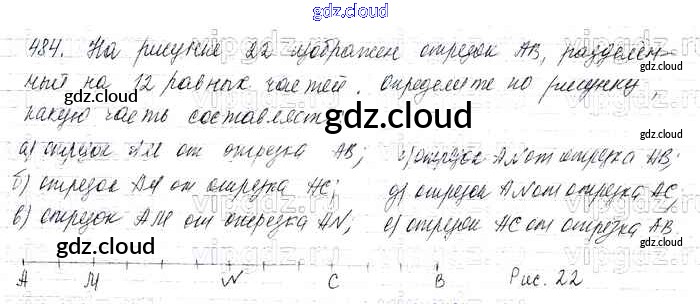 gdz.cloud
484. На рисунке 22 изображен отрезок AB, разделен-
ный на 12 равных частей. определите по рисунку,
какую часть составляет
gdz.cloud
а) отрезок AM от отрезка AB; г) отрезок AN от отрезка AB;
б) отрезок AM от отрезка AC; д) отрезок AN от отрезка AC,
в) отрезок AM от отрезка AN; е) отрезок AC от отрезка AB.
gdz.cloud gdz.cloud
A M N C B Рис. 22